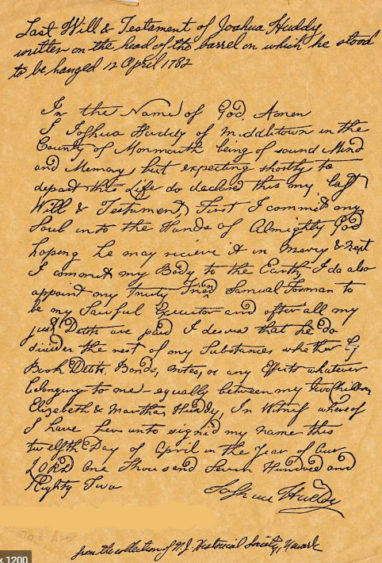 Last Will & Testament of Joshua Huddy
written on the head of the barrel on which he stood
to be hanged 12 April 1782
In the Name of God, Amen
I Joshua Huddy of Middletown in the
County of Monmouth being of sound Mind
and Memory but expecting shortly to
depart this Life do declare this my Last
Will & Testament, First I commit my
Soul into the Hands of Almighty God
hoping he may recieve it in Mercy & Next
I commit my Body to the Earth, I do also
appoint my Trusty Friend Samuel Forman to
be my Lawful Executor and after all my
Just Debts are paid I desire that he do
divide the rest of my Substance whether by
Book Debts, Bonds, Notes, or any Effects whatever
belonging to me equally between my two Children
Elizabeth & Martha Huddy, In Witness whereof
I have here unto signed my name this
twelfth Day of April in the Year of Our
Lord One Thousand Seven Hundred and
Eighty Two
Joshua Huddy
from the collection of N.J. Historical Society, Newark
x 1200